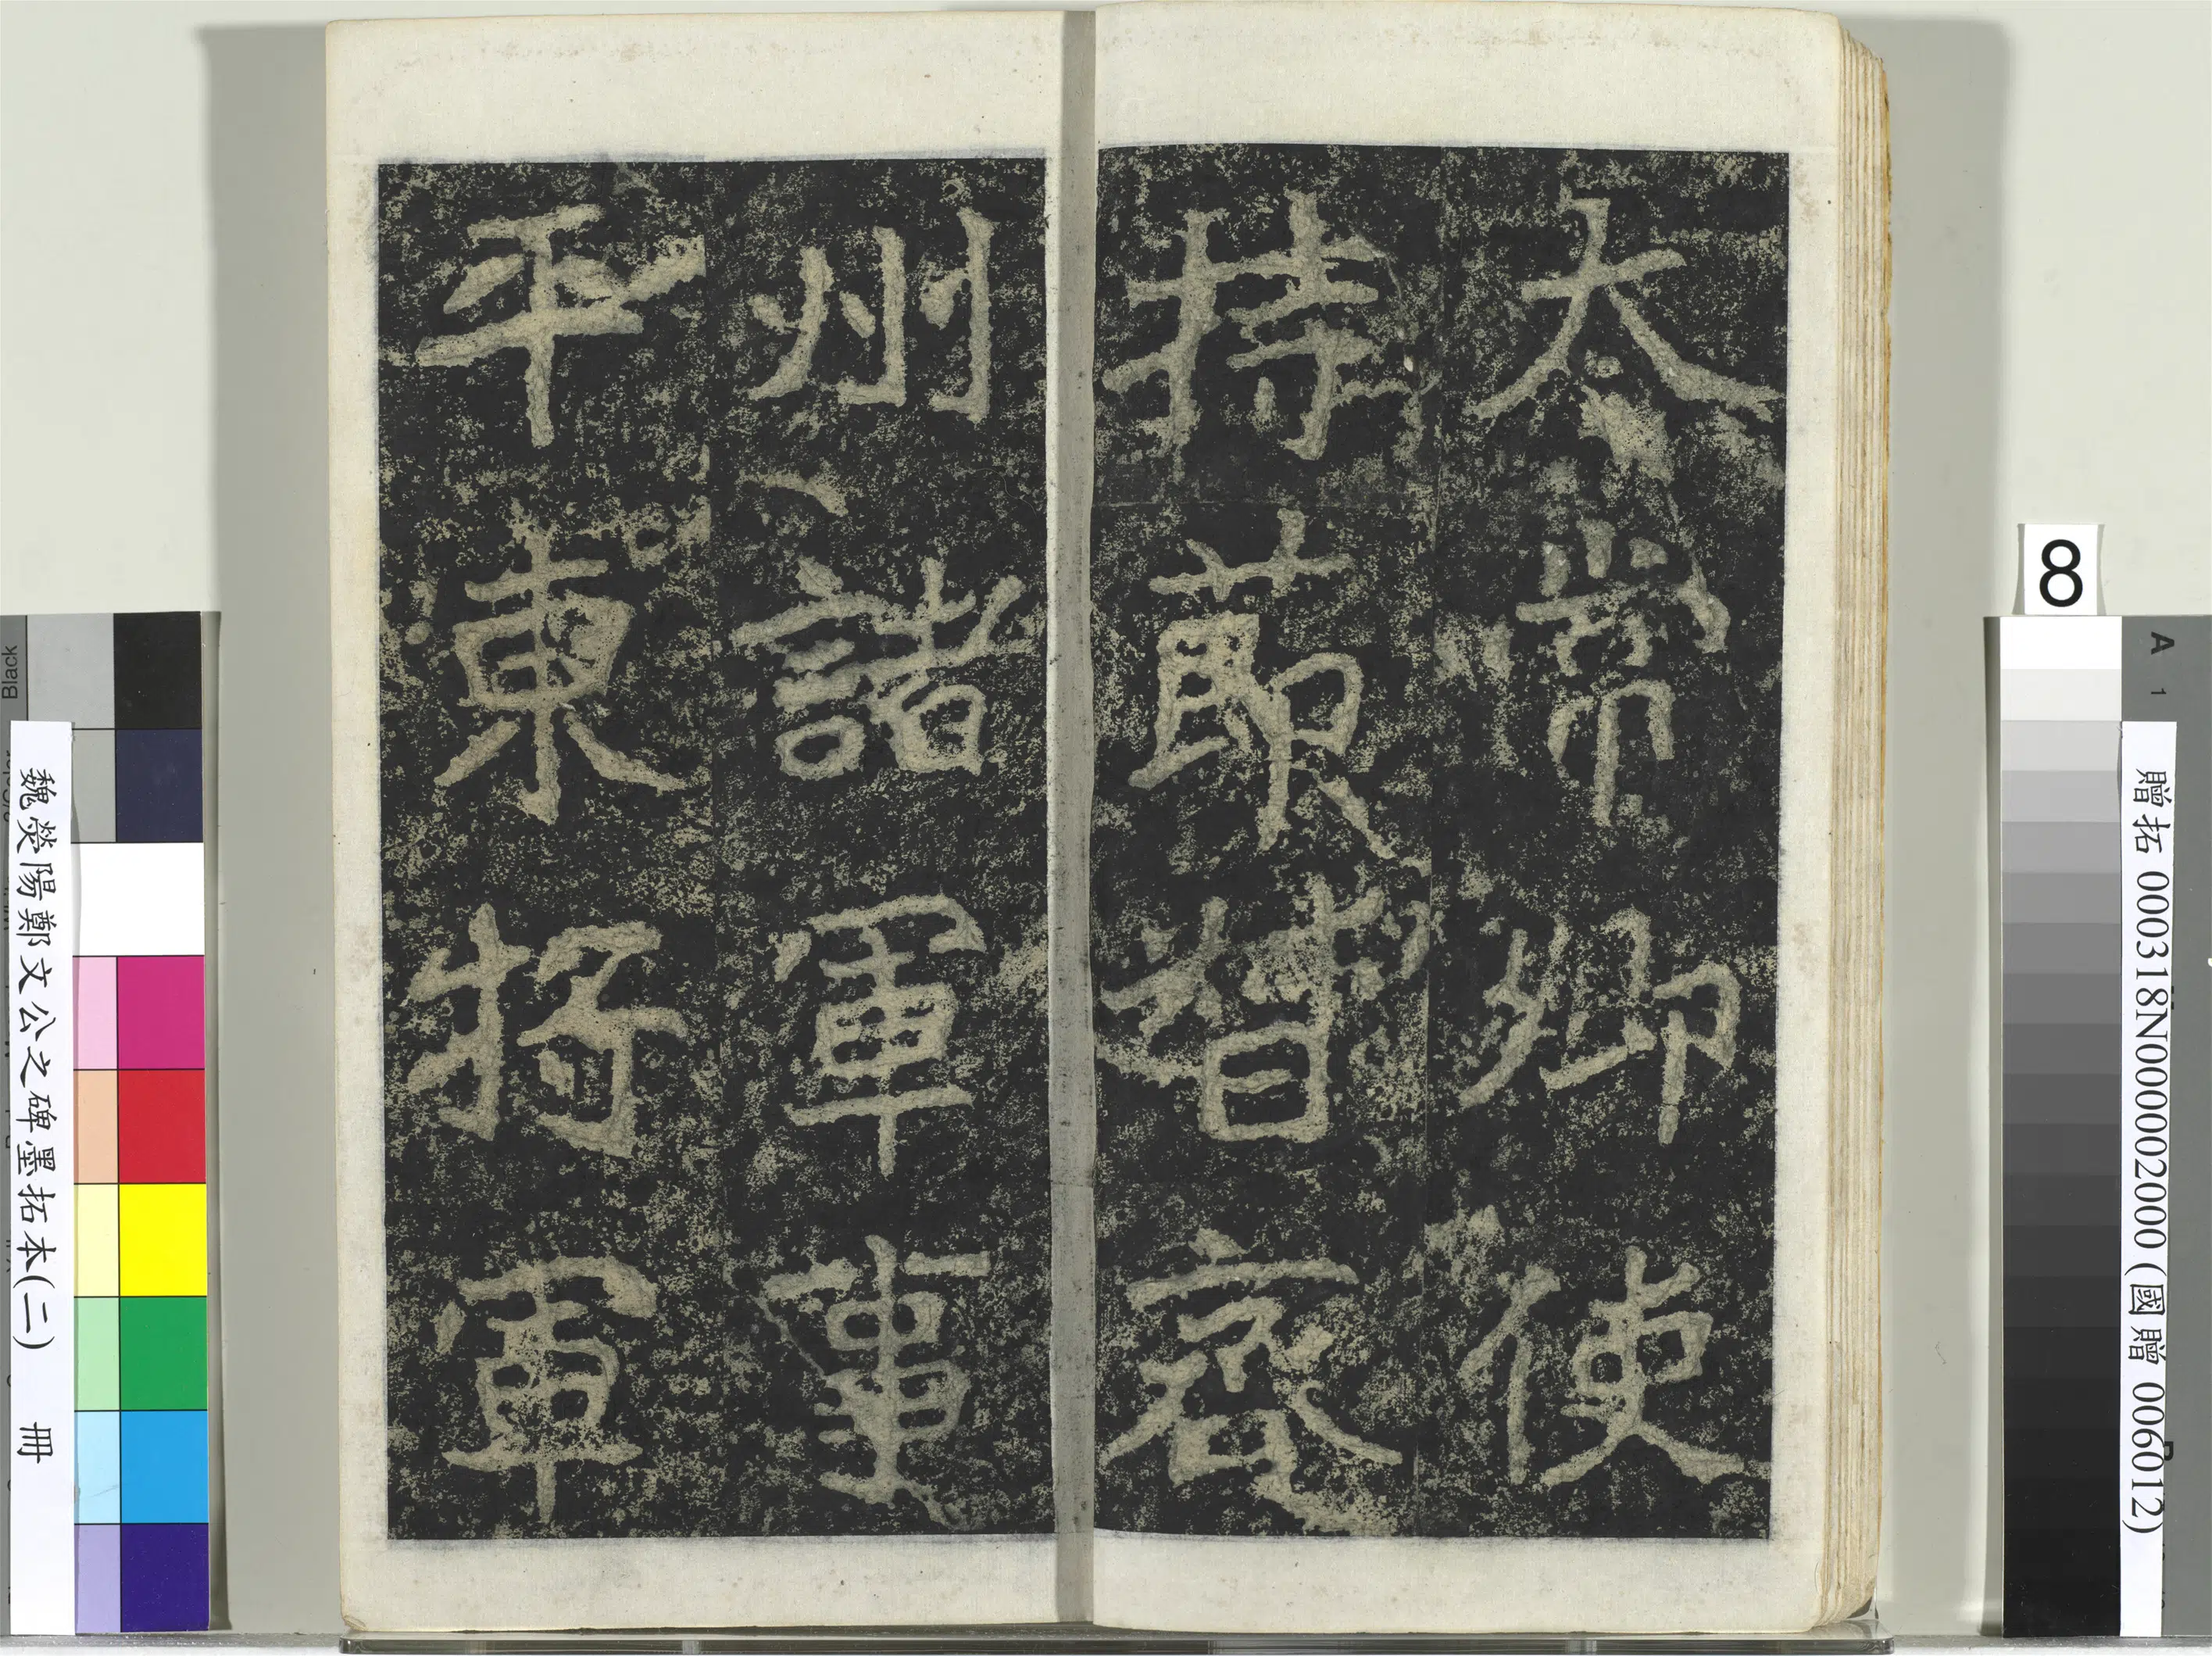 太常卿使
持莭督兗
州諸軍事
平東將軍
魏熒陽鄭文公之碑墨拓本(二) 冊
贈拓 000318N000002000 (國贈 006012)
8
Black
A 1